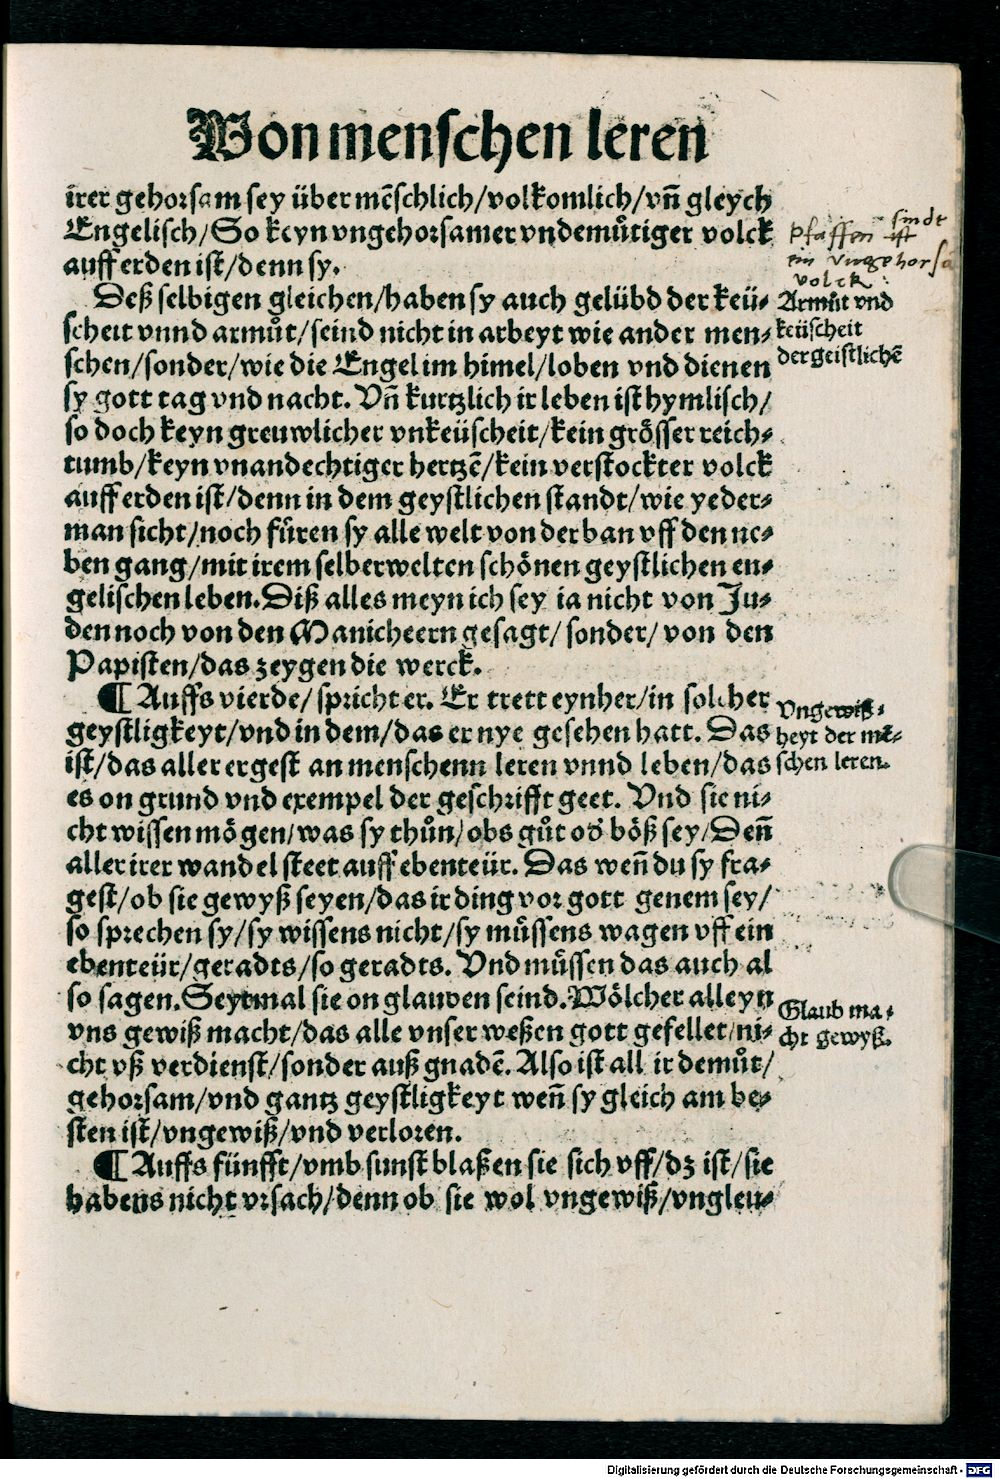 Von menschen leren
irer gehorsam sey über mēschlich/volkomlich/vn̄ gleych
Engelisch/So keyn vngehorsamer vndemuͤtiger volck
auff erden ist/denn sy.
Pfaffen sindt
ist
ein vngehorsa
volck:
Deß selbigen gleichen/haben sy auch gelübd der keü⸗
scheit vnnd armuͦt/seind nicht in arbeyt wie ander men⸗
schen/sonder/wie die Engel im himel/loben vnd dienen
sy gott tag vnd nacht. Vn̄ kurtzlich ir leben ist hymlisch/
so doch keyn greuwlicher vnkeüscheit/kein groͤsser reich⸗
tumb/keyn vnandechtiger hertzē/kein verstockter volck
auff erden ist/denn in dem geystlichen standt/wie yeder⸗
man sicht/noch fuͤren sy alle welt von der ban vff den ne⸗
ben gang/mit irem selberwelten schoͤnen geystlichen en⸗
gelischen leben. Diß alles meyn ich sey ia nicht von Ju⸗
den noch von den Manicheern gesagt/ sonder/ von den
Papisten/das zeygen die werck.
Armuͦt vnd
keüscheit
der geistlichē
¶ Auffs vierde/ spricht er. Er trett eynher/in solcher
geystligkeyt/vnd in dem/das er nye gesehen hatt. Das
ist/das aller ergest an menschenn leren vnnd leben/das
es on grund vnd exempel der geschrifft geet. Vnd sie ni⸗
cht wissen moͤgen/was sy thuͦn/obs guͦt od̓ boͤß sey/Den̄
aller irer wandel steet auff ebenteür. Das wen̄ du sy fra⸗
gest/ob sie gewyß seyen/das ir ding vor gott genem sey/
so sprechen sy/sy wissens nicht/sy muͤssens wagen vff ein
ebenteür/geradts/so geradts. Vnd muͤssen das auch al
so sagen. Seytmal sie on glauben seind. Woͤlcher alleyn
vns gewiß macht/das alle vnser weßen gott gefellet/ni⸗
cht vß verdienst/sonder auß gnadē. Also ist all ir demuͦt/
gehorsam/vnd gantz geystligkeyt wen̄ sy gleich am be⸗
sten ist/vngewiß/vnd verloren.
Vngewiß⸗
heyt der mē⸗
schen leren.
Glaub ma⸗
cht gewyß.
¶ Auffs fünfft/vmb sunst blaßen sie sich vff/dz ist/sie
habens nicht vrsach/denn ob sie wol vngewiß/vngleu⸗
Digitalisierung gefördert durch die Deutsche Forschungsgemeinschaft - DFG